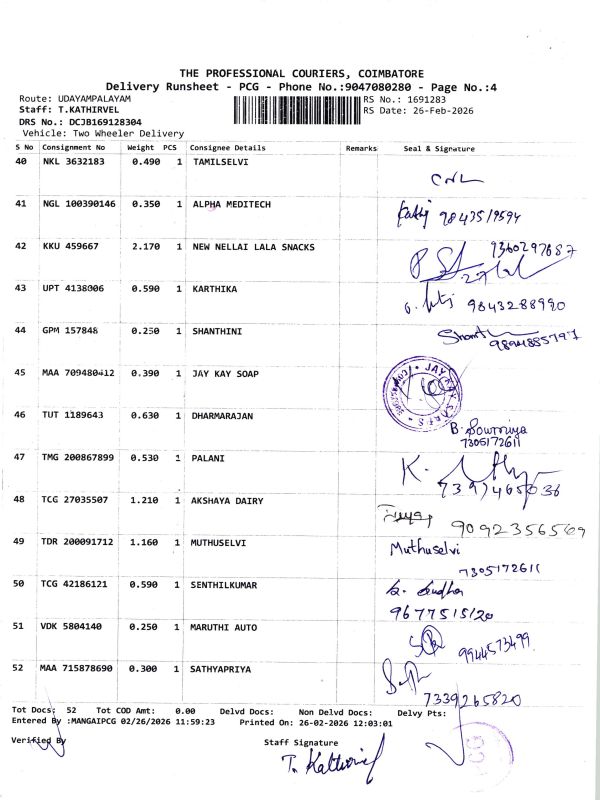 THE PROFESSIONAL COURIERS, COIMBATORE
Delivery Runsheet - PCG - Phone No.:9047080280 - Page No.:4
Route: UDAYAMPALAYAM RS No.: 1691283
Staff: T.KATHIRVEL RS Date: 26-Feb-2026
DRS No.: DCJB169128304
Vehicle: Two Wheeler Delivery
S No Consignment No Weight PCS Consignee Details Remarks Seal & Signature
40 NKL 3632183 0.490 1 TAMILSELVI
41 NGL 100390146 0.350 1 ALPHA MEDITECH
9843519594
42 KKU 459667 2.170 1 NEW NELLAI LALA SNACKS 9360297687
43 UPT 4138006 0.590 1 KARTHIKA
9843288990
44 GPM 157848 0.250 1 SHANTHINI
9894885797
45 MAA 709480412 0.390 1 JAY KAY SOAP
46 TUT 1189643 0.630 1 DHARMARAJAN
B. Sowmiya
7305172611
47 TMG 200867899 0.530 1 PALANI
7397465036
48 TCG 27035507 1.210 1 AKSHAYA DAIRY
9092356569
49 TDR 200091712 1.160 1 MUTHUSELVI Muthuselvi
7305172611
50 TCG 42186121 0.590 1 SENTHILKUMAR
9677515120
51 VDK 5804140 0.250 1 MARUTHI AUTO
9944573499
52 MAA 715878690 0.300 1 SATHYAPRIYA
7339265820
Tot Docs: 52 Tot COD Amt: 0.00 Delvd Docs: Non Delvd Docs: Delvy Pts:
Entered By :MANGAIPCG 02/26/2026 11:59:23 Printed On: 26-02-2026 12:03:01
Verified By Staff Signature
PCG